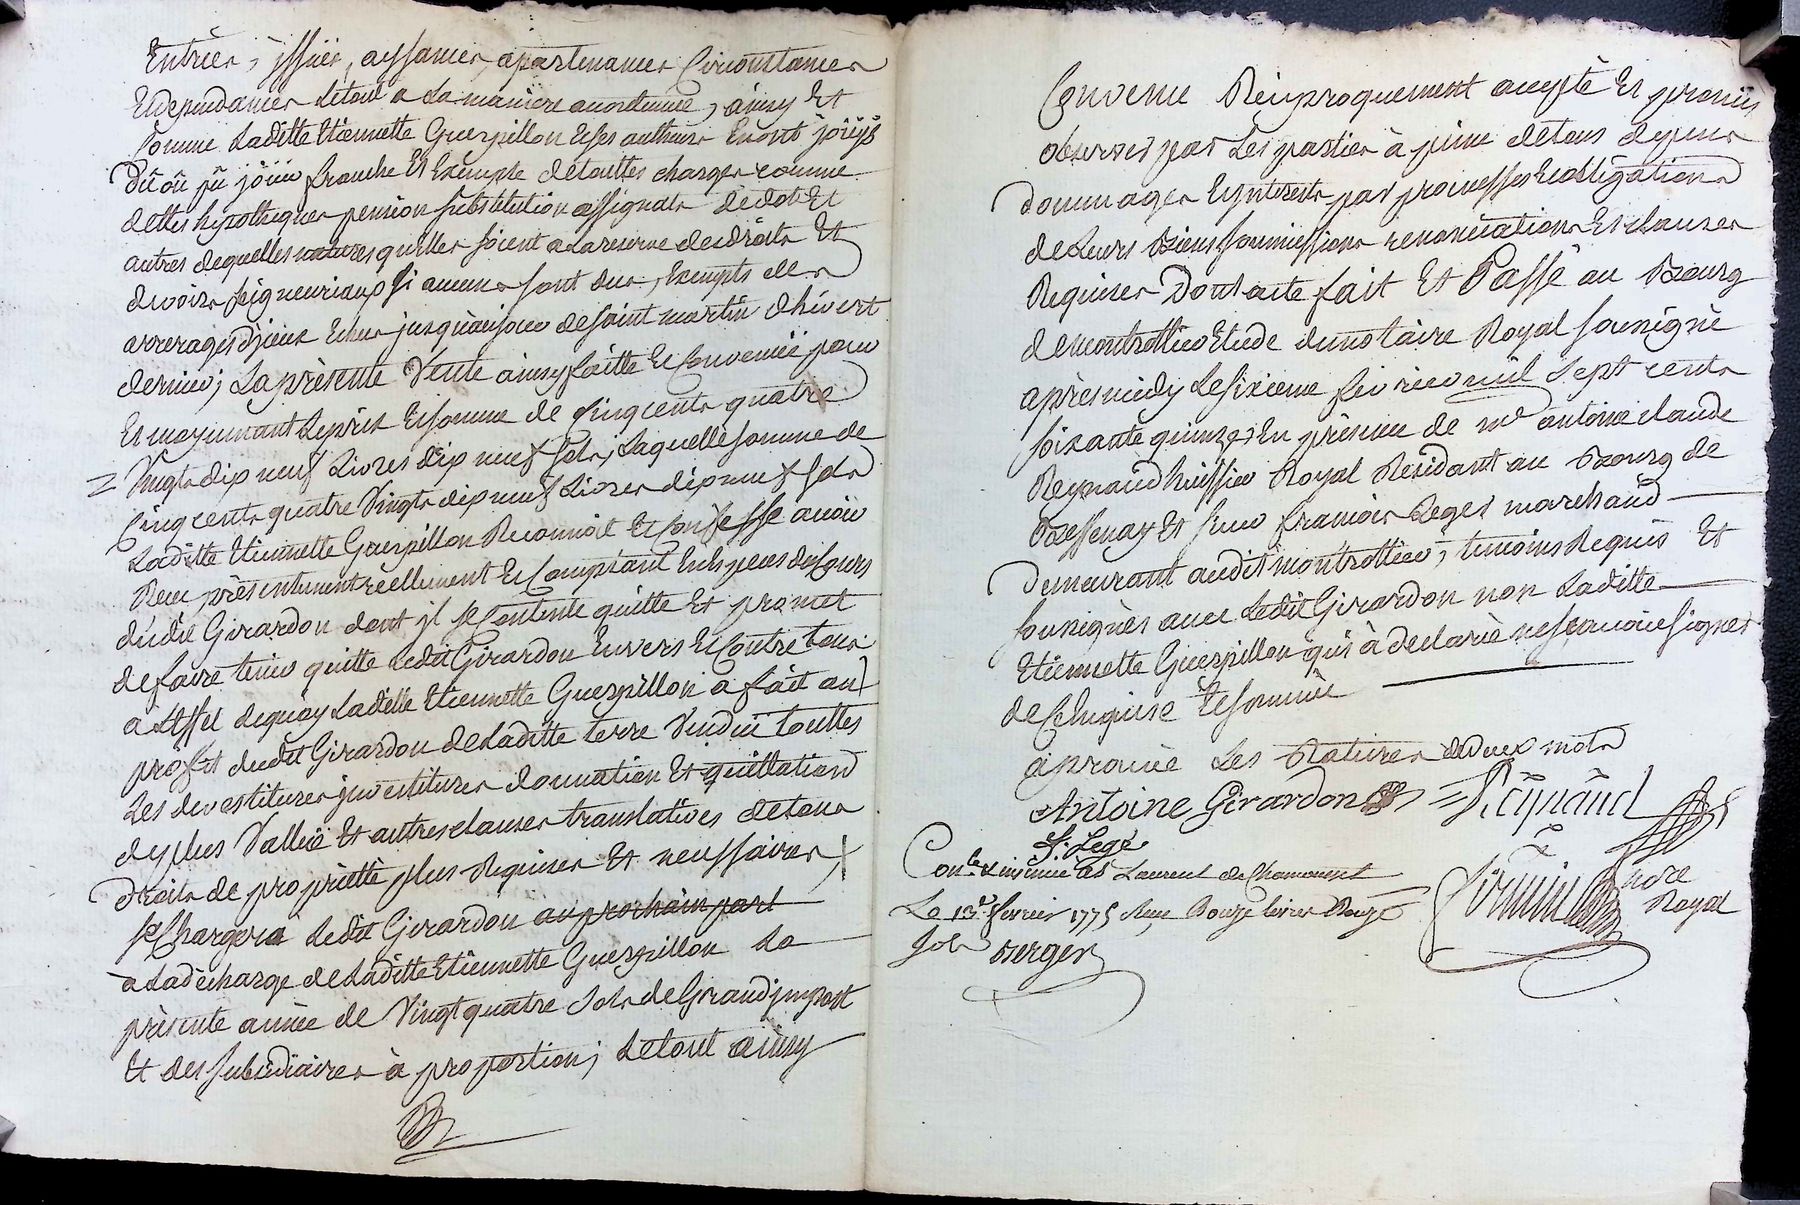 Entrées, issües, aysances, apartenances Circonstances
Et dependances Letout a La manière acoutumée, ainsy Et
Comme Laditte Etiennette Guerpillon Et ses autheurs En ont joüys
Dû ou pû joüir franche Et Exempte detouttes charges comme
dettes hypotheques pension substitution assignats dedot Et
autres dequelles natures quelles soient a La reserve des droits Et
devoirs seigneuriaux si aucuns sont dus, Exempts des
arrerages d'jceux Echus jusqu'aujour de saint martin d'hivert
dernier; La présente Vente ainsy faitte Et Convenüe pour
Et moyennant Leprix Et somme de Cinq cents quatre
Vingts dix neuf Livres dix neuf sols, Laquelle somme de
Cinq cents quatre Vingts dix neuf Livres dix neuf sols
Laditte Etiennette Guerpillon Reconnoit Et Confesse avoir
Reçu présentement réellement Et Comptant En Especes du Cours
dudit Girardon dont jl se Contente quitte Et promet
de faire tenir quitte Ledit Girardon Envers Et Contre tous
a L'effet dequoy Laditte Etiennette Guerpillon a fait au
profit dudit Girardon de Laditte terre Vendüe touttes
Les devestitures jnvestitures donnation Et quittation
de plus Vallüe Et autres clauses translatives detous
droits de propriétté plus Requises Et necessaires
se Chargera Ledit Girardon au prochain part
à Ladécharge de Laditte Etiennette Guerpillon La
présente année de Vingt quatre sols de Grand jmpost
Et des subsidiaires à proportion; Letout ainsy
Convenu Réciproquement accepté Et promis
observer par Les parties à peine detous depens
dommages Et jnterests par promesses Et obligations
de Leurs Biens soumissions renonciations Et clauses
Requises Dont acte fait Et Passé au Bourg
de montrottier Etude du notaire Royal sousigné
après midy Le sixieme fevrier mil sept cents
soixante quinze, En présence de me antoine claude
Reynaud huissier Royal Résidant au Bourg de
Bessenay Et sieur francois Leges marchand
demeurant audit montrottier, temoins Requis Et
sousignés avec Ledit Girardon non Laditte
Etiennette Guerpillon qui à declaré ne sçavoir signer
de Ce Enquise Et sommée
aprouvé Les Ratures de deux mots
Antoine Girardon Reÿnaud
f. Legé
Conlé & insinué à St Laurent de Chamousset
Le 13e fevrier 1775 Reçu Douze livres Douze
sols Berger
nore
Royal